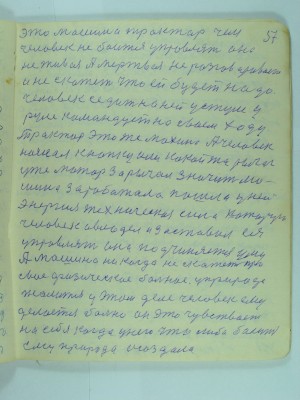 57
Это машина трактар чем
человек не боится управлят она
не живая А мертвая не разговаривает
а не скажет что ей будет надо
человек седит на ней уступе у
руле командует по своем ходу
Трактар Это же махина А человек
нажал кнопку или какой та рычаг
уже матор Зарычал Значит ма-
шина Заработала пошла у ней
Энергия техническая сила которую
человек овладел и Заставил ея
управлять она подчиняется ему
А машина никогда не скажет про
свое физическое больное. у природе
у этом деле человек ему
делается больно он Это чувствует
на себя когда у него что либо болит
ему природа создала